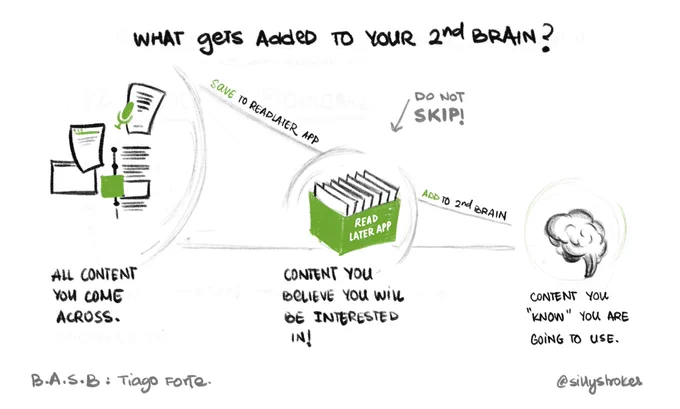 WHAT gets Added TO YOUR 2nd BRAIN?
SAVE TO READLATER APP
DO NOT
SKIP!
ADD TO 2nd BRAIN
READ
LATER APP
ALL CONTENT
YOU COME
ACROSS.
CONTENT YOU
BELIEVE YOU WILL
BE INTERESTED
IN!
CONTENT YOU
"KNOW" YOU ARE
GOING TO USE.
B.A.S.B : Tiago Forte.
@sillystrokes